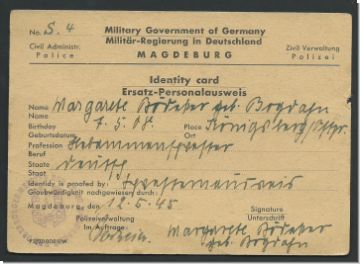 No. S. 4
Military Government of Germany
Militär-Regierung in Deutschland
MAGDEBURG
Civil Administr.
Police
Zivil Verwaltung
Polizei
Identity card
Ersatz-Personalausweis
Name Margarete Bödeker geb. Bografn
Name
Birthday 7. 5. 08. Place Königsberg/Ostpr.
Geburtsdatum Ort
Profession Hebammenschwester
Beruf
Staate Deutsch
Staat
Identidy is proofed by: Schwesternausweis
Glaubwürdigkeit nachgewiesen durch:
Magdeburg, den 12. 5. 45
Polizeiverwaltung
Im Auftrage:
Signature
Unterschrift
Margarete Bödeker
geb. Bografn